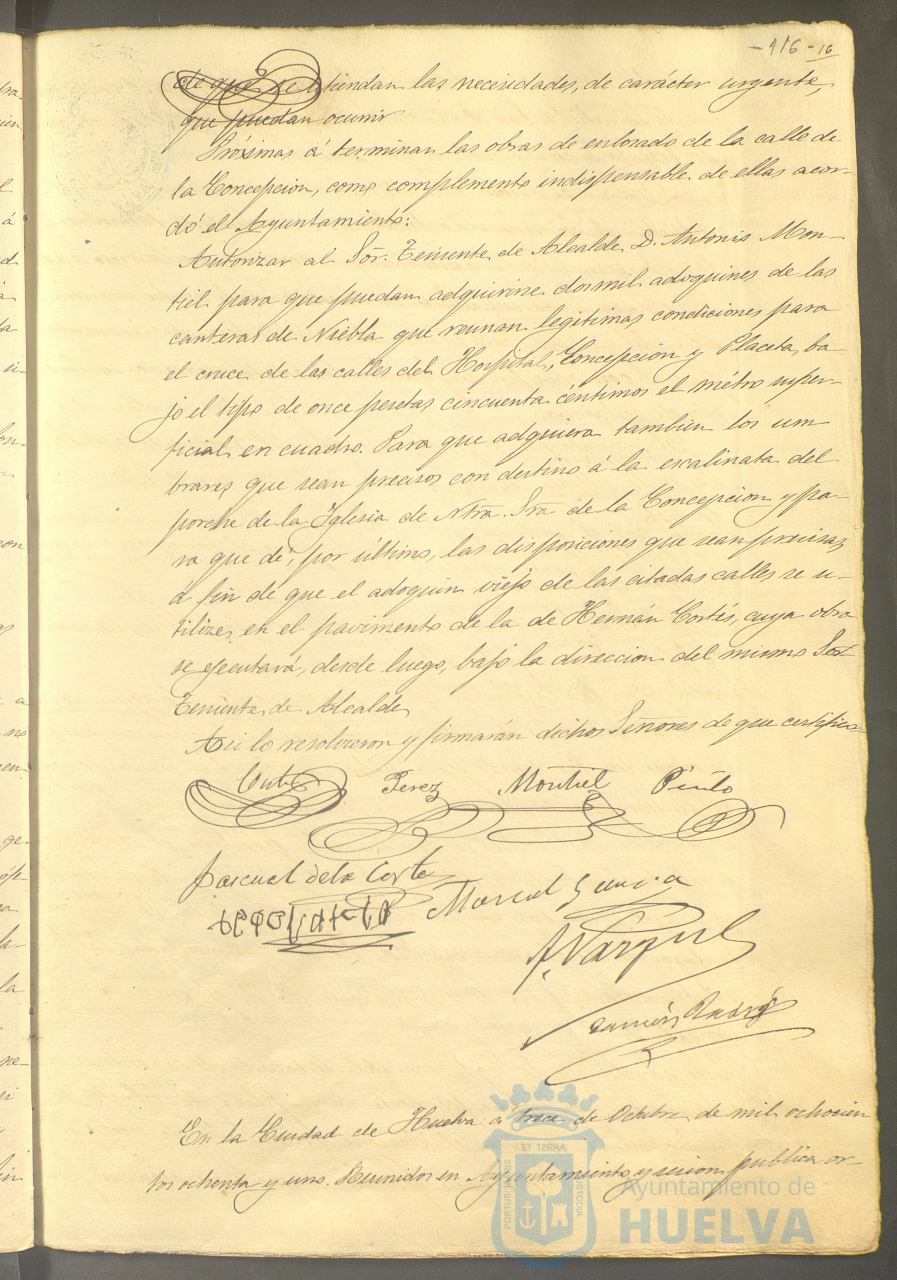 - 116 - 16
de que se atiendan las necesidades, de carácter urgente,
que puedan ocurrir
Próximas á terminar las obras de enlosado de la calle de
la Concepcion, como complemento indispensable de ellas acor-
dó el Ayuntamiento:
Autorizar al Sõr. Teniente de Alcalde D. Antonio Mon-
tiel para que puedan adquirirse dos mil adoquines de las
canteras de Niebla que reunan legitimas condiciones para
el cruce de las calles del Hospital, Concepcion y Placeta, ba-
jo el tipo de once pesetas cincuenta céntimos el métro super-
ficial en cuadro. Para que adquiera tambien los um
brares que sean precisos con destino á la escalinata del
porche de la Iglesia de Ntra. Sra de la Concepcion y pa-
ra que dé, por último, las disposiciones que sean precisas
á fin de que el adoquin viejo de las citadas calles se u-
tilize, en el pavimento de la de Hernán Cortés, cuya obra
se ejecutará, desde luego, bajo la direccion del mismo Sor
Teniente de Alcalde,
Asi lo resolvieron y firmarán dichos Señores de que certifico
Perez Montiel
Pascual de la Corte
Garcia
A. Vazquez
Ramón
En la Ciudad de Huelva á trece de Octubre de mil ochocien
tos ochenta y uno. Reunidos en Ayuntamiento y sesion publica or-
PORTUS MARIS
ET TERRÆ
CUSTODIA
Ayuntamiento de
HUELVA